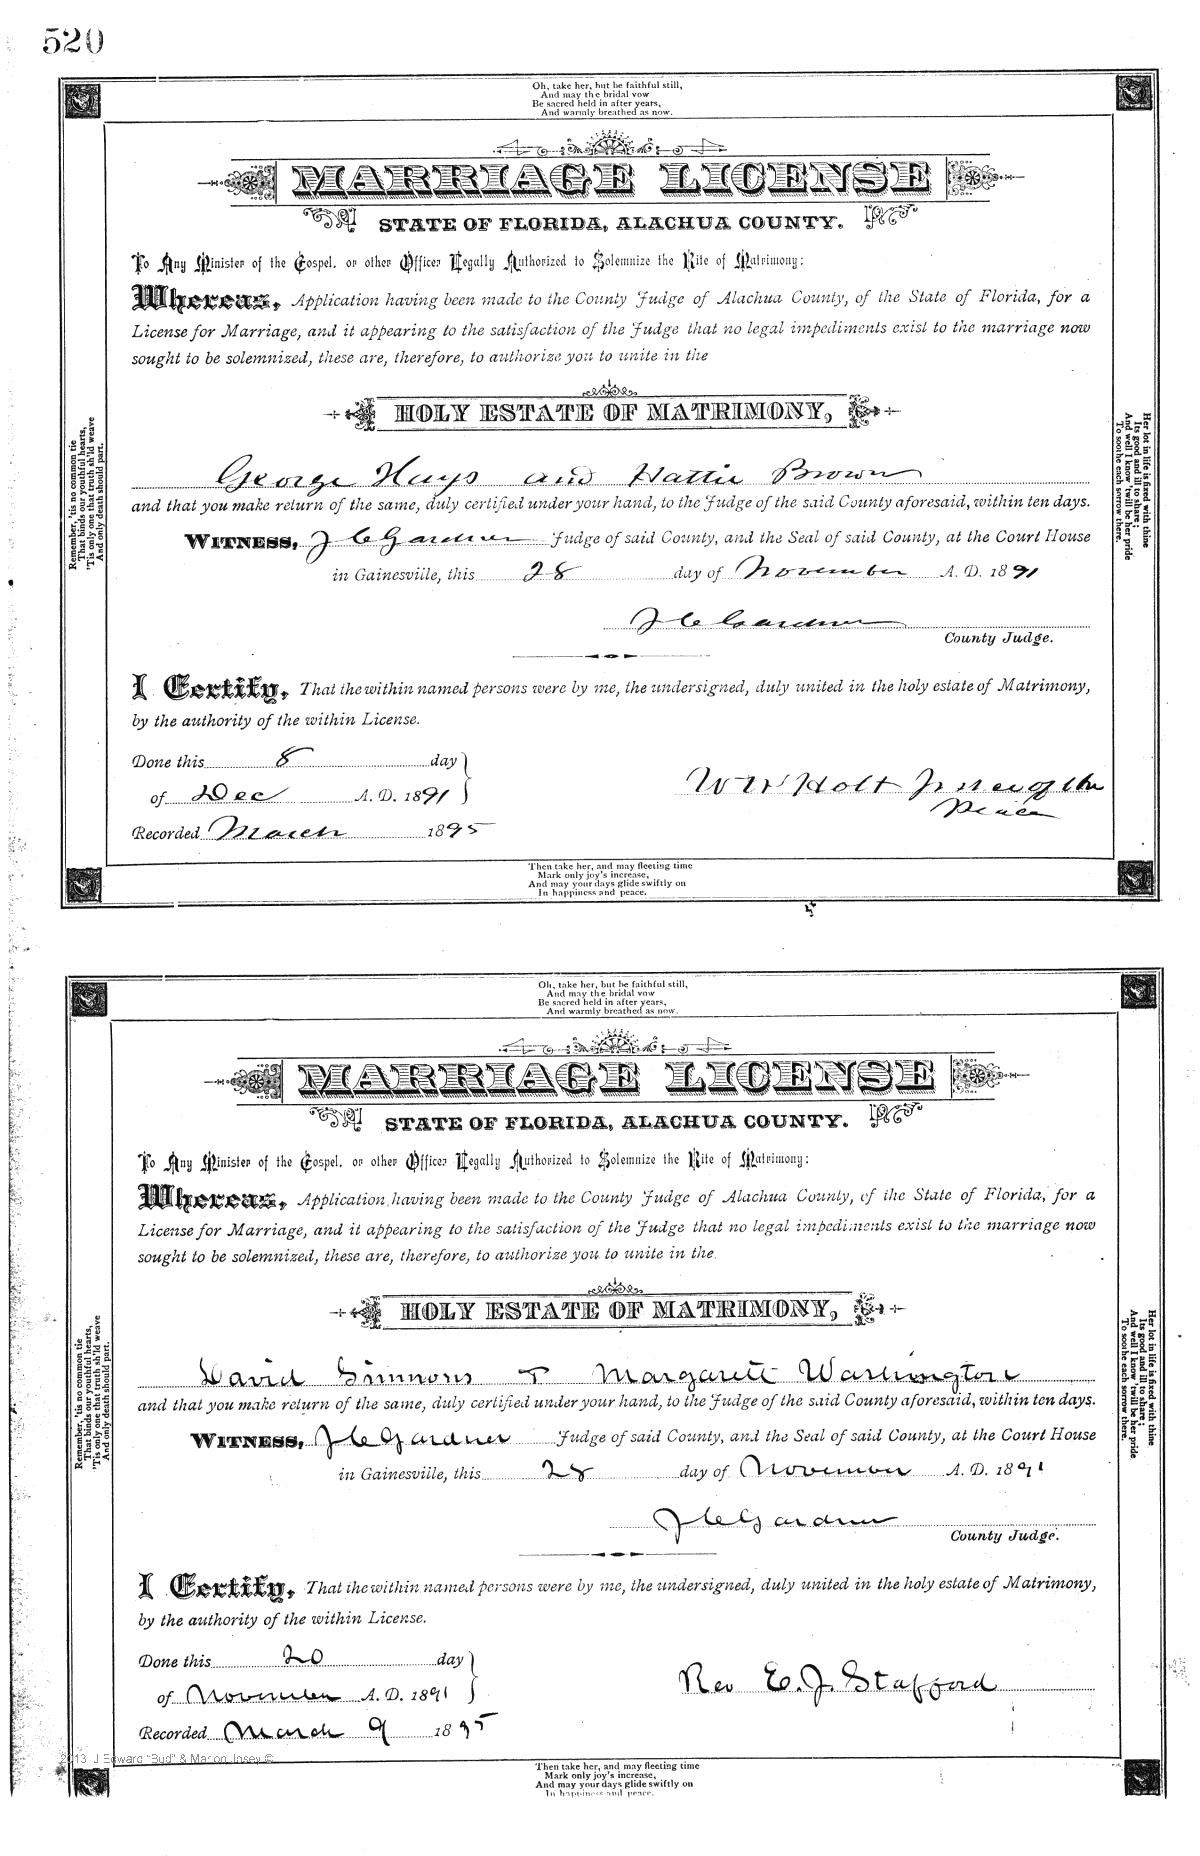 520
Oh, take her, but be faithful still,
And may the bridal vow
Be sacred held in after years,
And warmly breathed as now.
MARRIAGE LICENSE
STATE OF FLORIDA, ALACHUA COUNTY.
To Any Minister of the Gospel, or other Officer Legally Authorized to Solemnize the Rite of Matrimony:
Whereas, Application having been made to the County Judge of Alachua County, of the State of Florida, for a
License for Marriage, and it appearing to the satisfaction of the Judge that no legal impediments exist to the marriage now
sought to be solemnized, these are, therefore, to authorize you to unite in the
HOLY ESTATE OF MATRIMONY,
George Hays and Hattie Brown
and that you make return of the same, duly certified under your hand, to the Judge of the said County aforesaid, within ten days.
WITNESS, J C Gardner Judge of said County, and the Seal of said County, at the Court House
in Gainesville, this 28 day of November A. D. 1891
J C Gardner
County Judge.
I Certify, That the within named persons were by me, the undersigned, duly united in the holy estate of Matrimony,
by the authority of the within License.
Done this 8 day
of Dec A. D. 1891
W W Holt Justice of the
Peace
Recorded March 1895
Remember, 'tis no common tie
That binds our youthful hearts,
'Tis only one that truth sh'ld weave
And only death should part.
Her lot in life is fixed with thine
Its good and ill to share;
And well I know 'twill be her pride
To soothe each sorrow there.
Then take her, and may fleeting time
Mark only joy's increase,
And may your days glide swiftly on
In happiness and peace.
Oh, take her, but be faithful still,
And may the bridal vow
Be sacred held in after years,
And warmly breathed as now.
MARRIAGE LICENSE
STATE OF FLORIDA, ALACHUA COUNTY.
To Any Minister of the Gospel, or other Officer Legally Authorized to Solemnize the Rite of Matrimony:
Whereas, Application having been made to the County Judge of Alachua County, of the State of Florida, for a
License for Marriage, and it appearing to the satisfaction of the Judge that no legal impediments exist to the marriage now
sought to be solemnized, these are, therefore, to authorize you to unite in the
HOLY ESTATE OF MATRIMONY,
David Simmons & Margarett Washington
and that you make return of the same, duly certified under your hand, to the Judge of the said County aforesaid, within ten days.
WITNESS, J C Gardner Judge of said County, and the Seal of said County, at the Court House
in Gainesville, this 28 day of November A. D. 1891
J C Gardner
County Judge.
I Certify, That the within named persons were by me, the undersigned, duly united in the holy estate of Matrimony,
by the authority of the within License.
Done this 20 day
of November A. D. 1891
Rev E. J. Stafford
Recorded March 9 1895
Remember, 'tis no common tie
That binds our youthful hearts,
'Tis only one that truth sh'ld weave
And only death should part.
Her lot in life is fixed with thine
Its good and ill to share;
And well I know 'twill be her pride
To soothe each sorrow there.
2013 J Edward "Bud" & Marion Josey ©
Then take her, and may fleeting time
Mark only joy's increase,
And may your days glide swiftly on
In happiness and peace.